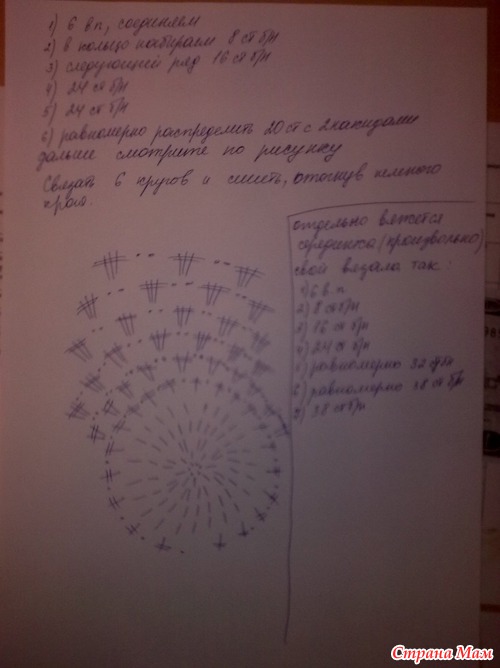 1) 6 в.п, соединяем
2) в кольцо набираем 8 ст б/н
3) следующий ряд 16 ст б/н
4) 24 ст б/н
5) 24 ст б/н
6) равномерно распределить 20 ст с 2 накидами
дальше смотрите по рисунку
Связать 6 кругов и сшить, отогнув немного
края.
отдельно вяжется
серединка (произвольно)
свой вязала так:
1) 6 в.п
2) 8 ст б/н
3) 16 ст б/н
4) 24 ст б/н
равномерно 32 ст б/н
равномерно 38 ст б/н
38 ст б/н
Страна Мам